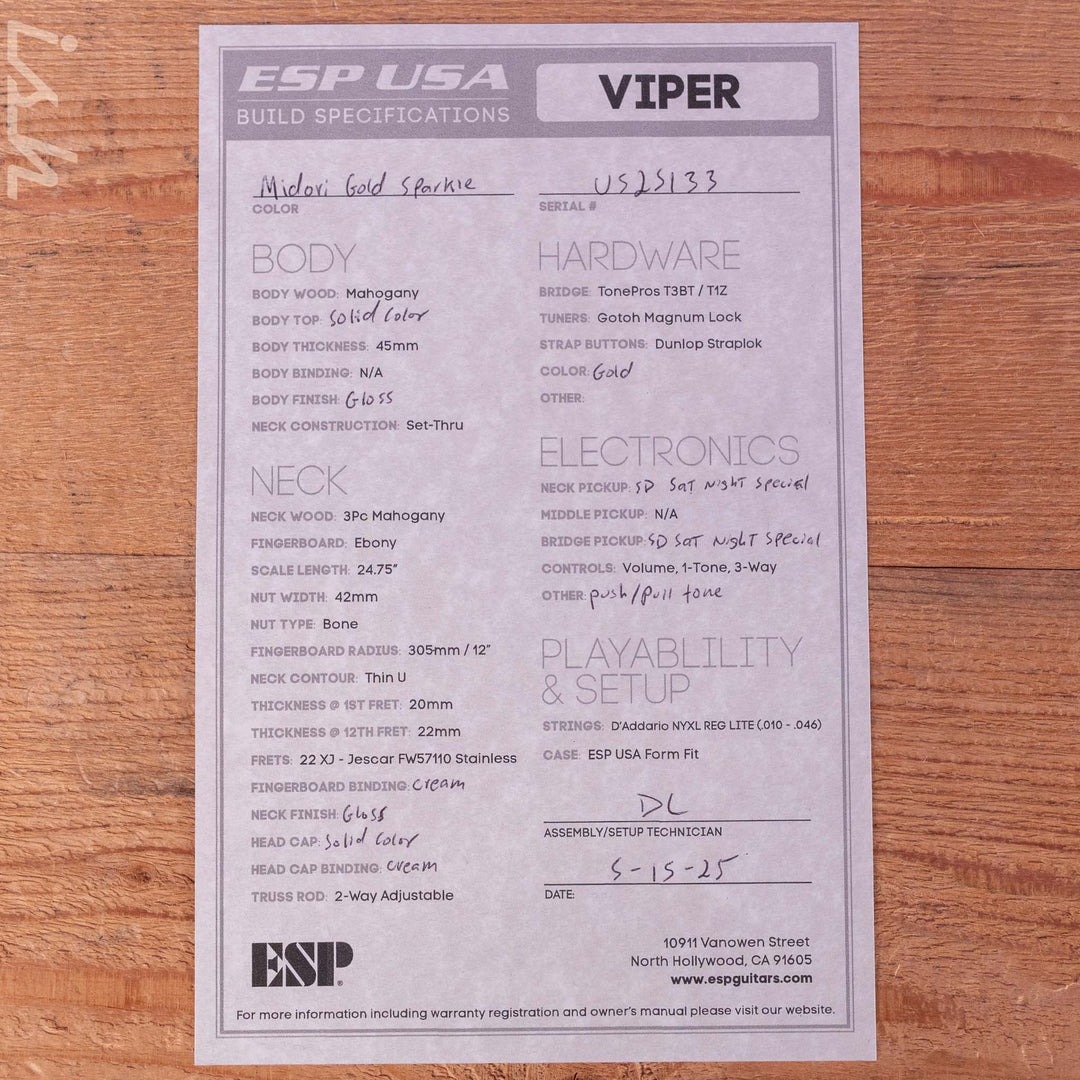 ish
ESP USA
BUILD SPECIFICATIONS
VIPER
Midori Gold Sparkle
COLOR
US25133
SERIAL #
BODY
BODY WOOD: Mahogany
BODY TOP: Solid Color
BODY THICKNESS: 45mm
BODY BINDING: N/A
BODY FINISH: Gloss
NECK CONSTRUCTION: Set-Thru
NECK
NECK WOOD: 3Pc Mahogany
FINGERBOARD: Ebony
SCALE LENGTH: 24.75”
NUT WIDTH: 42mm
NUT TYPE: Bone
FINGERBOARD RADIUS: 305mm / 12”
NECK CONTOUR: Thin U
THICKNESS @ 1ST FRET: 20mm
THICKNESS @ 12TH FRET: 22mm
FRETS: 22 XJ - Jescar FW57110 Stainless
FINGERBOARD BINDING: Cream
NECK FINISH: Gloss
HEAD CAP: Solid Color
HEAD CAP BINDING: Cream
TRUSS ROD: 2-Way Adjustable
HARDWARE
BRIDGE: TonePros T3BT / T1Z
TUNERS: Gotoh Magnum Lock
STRAP BUTTONS: Dunlop Straplok
COLOR: Gold
OTHER:
ELECTRONICS
NECK PICKUP: SD Sat Night Special
MIDDLE PICKUP: N/A
BRIDGE PICKUP: SD Sat Night Special
CONTROLS: Volume, 1-Tone, 3-Way
OTHER: push/pull tone
PLAYABLILITY
& SETUP
STRINGS: D’Addario NYXL REG LITE (.010 - .046)
CASE: ESP USA Form Fit
DL
ASSEMBLY/SETUP TECHNICIAN
5-15-25
DATE:
ESP
10911 Vanowen Street
North Hollywood, CA 91605
www.espguitars.com
For more information including warranty registration and owner’s manual please visit our website.